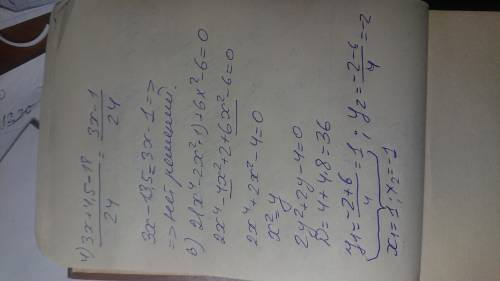 4) (3x+4,5-18)/24 = (3x-1)/24
3x-13,5=3x-1 =>
=> нет решений.
в) 2(x⁴-2x²+1)+6x²-6=0
2x⁴-4x²+2+6x²-6=0
2x⁴+2x²-4=0
x²=y
2y²+2y-4=0
D=4+4·8=36
y₁=(-2+6)/4=1 ; y₂=(-2-6)/4=-2
x₁=1 ; x₂=-1